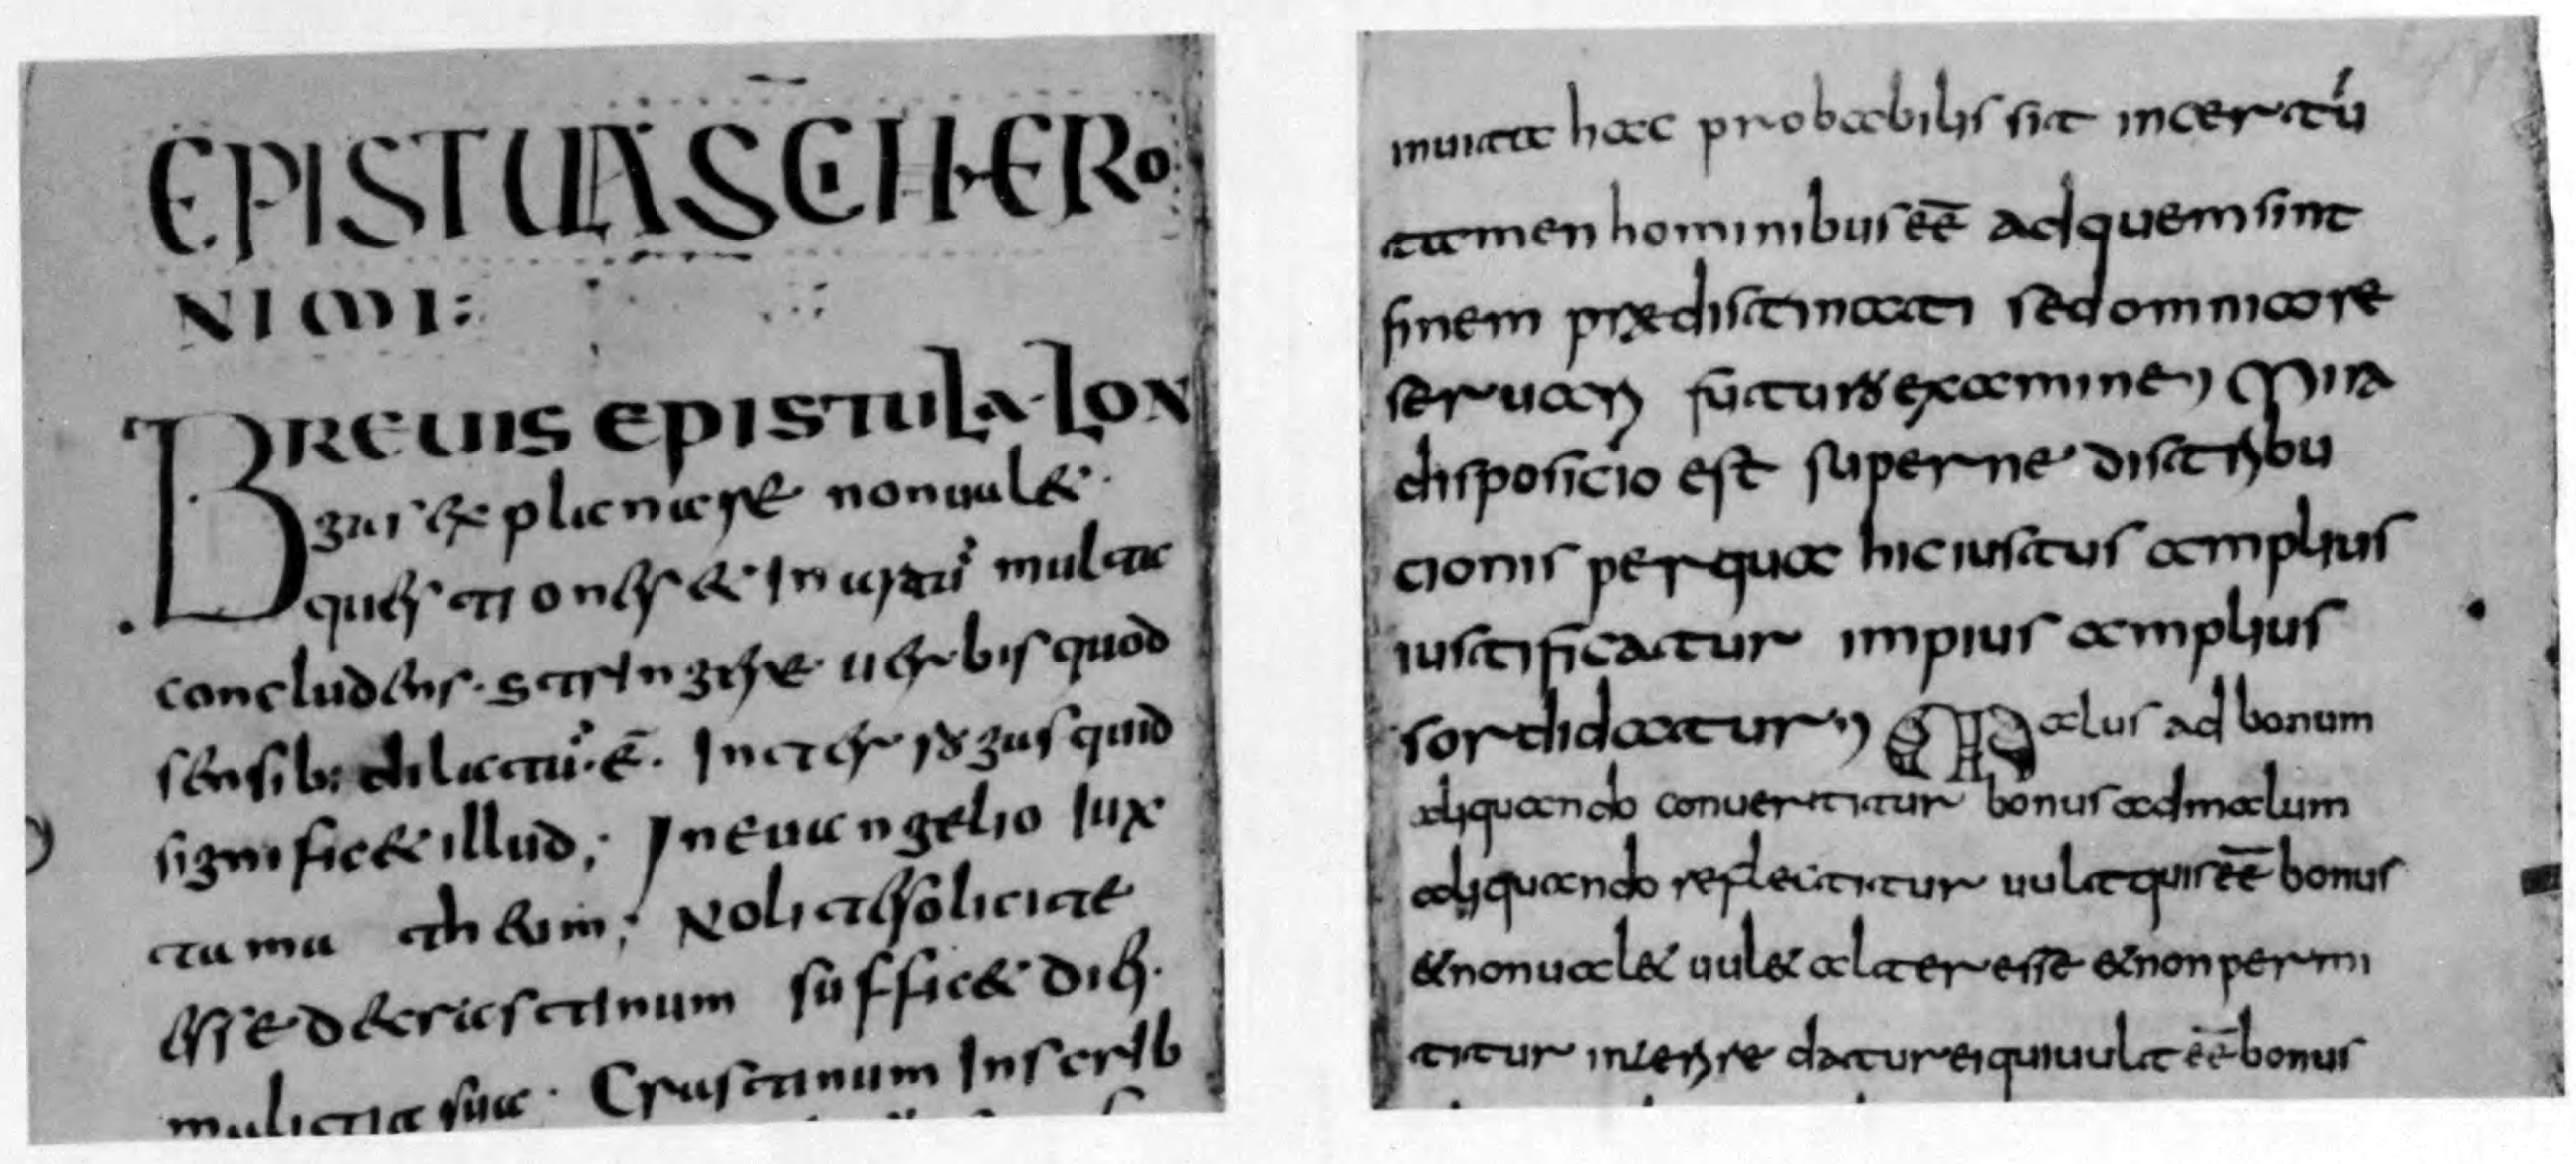 EPISTULA SCI HIERO
NIMI:
BREUIS EPISTULA· LON
gas explicare non ual&·
questiones & in artū multa
concludens· stringere uerbis quod
sensib; dilatatū·ē· Interrogas quid
signific& illud; In euangelio iux
ta matheum; Noli te soliciti
esse de crastinum suffic& diei·
malitia sua· Crastinum in scrib
inuita haec probabilis sit incertū
tamen hominibus eē ad quem sint
finem praedistinati sed omnia re
seruari futuro examine, Mira
disposicio est superne distribu
cionis per qua hic iustus amplius
iustificatur impius amplius
sordidatur, Malus ad bonum
aliquando conuertitur bonus ad malum
aliquando reflectitur uult quis eē bonus
& non ual& uul& alter esse & non permi
titur interire datur ei qui uult eē bonus